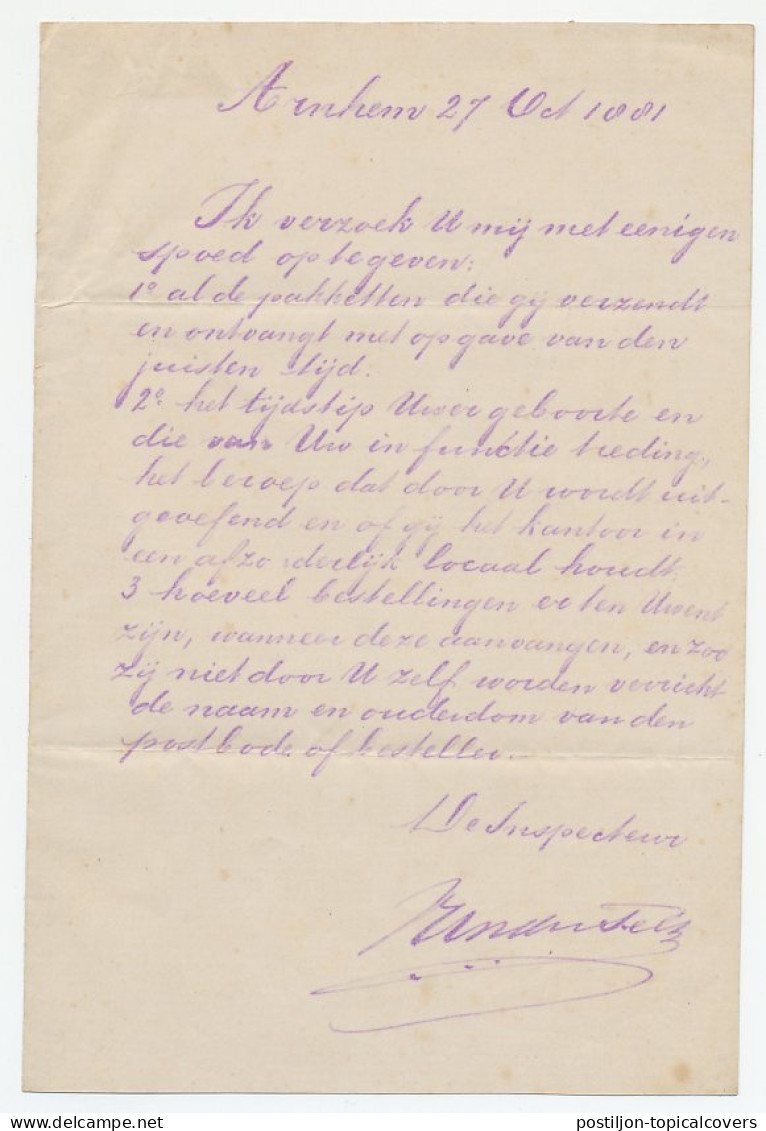 Arnhem 27 Oct 1881
Ik verzoek U mij met eenigen
spoed op te geven:
1º al de pakketten die gij verzendt
en ontvangt met opgave van den
juisten tijd.
2º het tijdstip Uwer geboorte en
die van Uw in functie treding,
het beroep dat door U wordt uit-
geoefend en of gij het kantoor in
een afzonderlijk locaal houdt.
3 hoeveel bestellingen er ten Uwent
zijn, wanneer deze aanvangen, en zoo
zij niet door U zelf worden verricht
de naam en ouderdom van den
postbode of besteller.
De Inspecteur
postiljon-topicalcovers